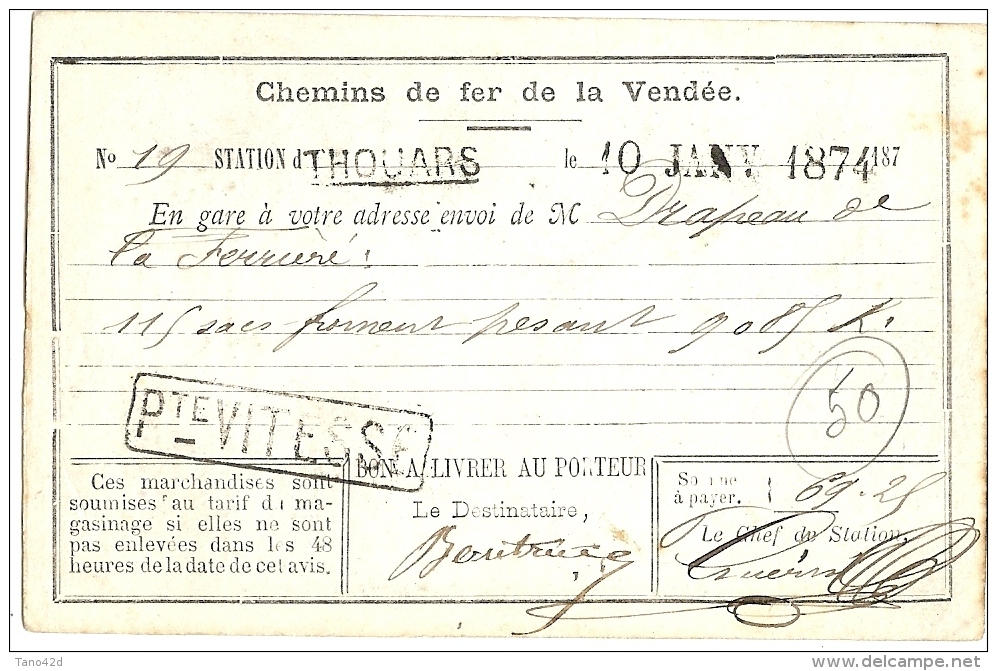 Chemins de fer de la Vendée.
No 19 STATION d THOUARS le 10 JANV 1874 187
En gare à votre adresse envoi de M Drapeau de
la Ferrière
115 sacs froment pesant 9085 K.
50
PTE VITESSE
Ces marchandises sont
soumises au tarif du ma-
gasinage si elles ne sont
pas enlevées dans les 48
heures de la date de cet avis.
BON A LIVRER AU PORTEUR
Le Destinataire,
Somme
à payer. 69.25
Le Chef de Station,
Tano42d
delcampe.net